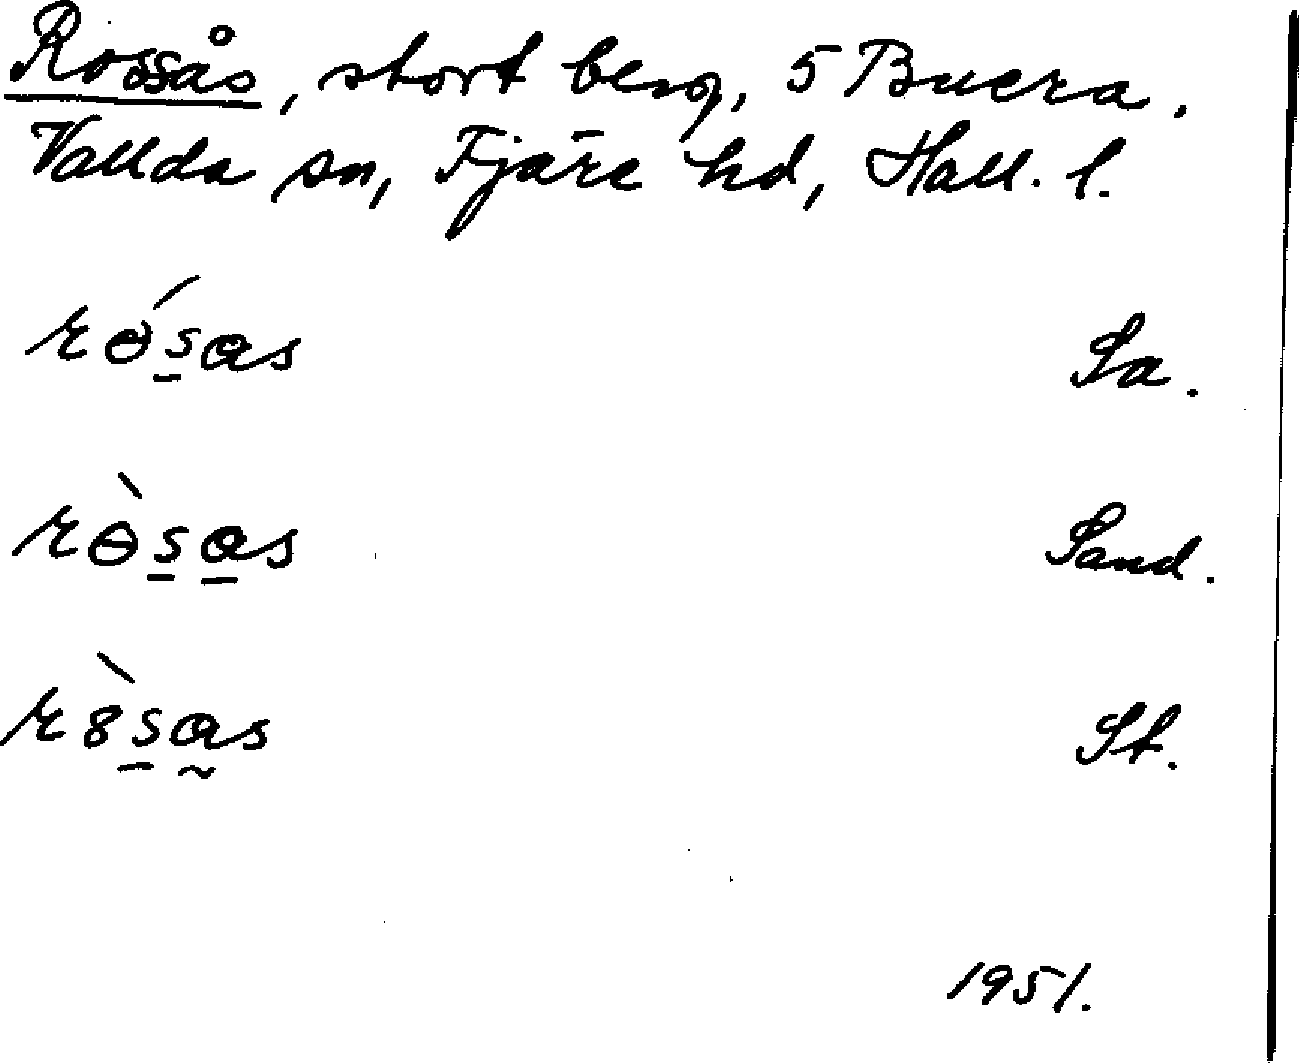 Rossås, stort berg, 5 Buera.
Vallda sn, Fjäre hd, Hall. l.
rɵ́s̲ɑs Sa.
rɵ̀s̲ɑ̲s Sand.
r8̀s̲ɑ̰s St.
1951.